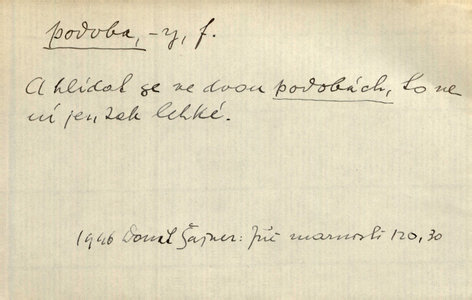 podoba, -y, f.
A hlídat se ve dvou podobách, to ne
ní jen tak lehké.
1946 Donat Šajner: Při marnosti 120, 30